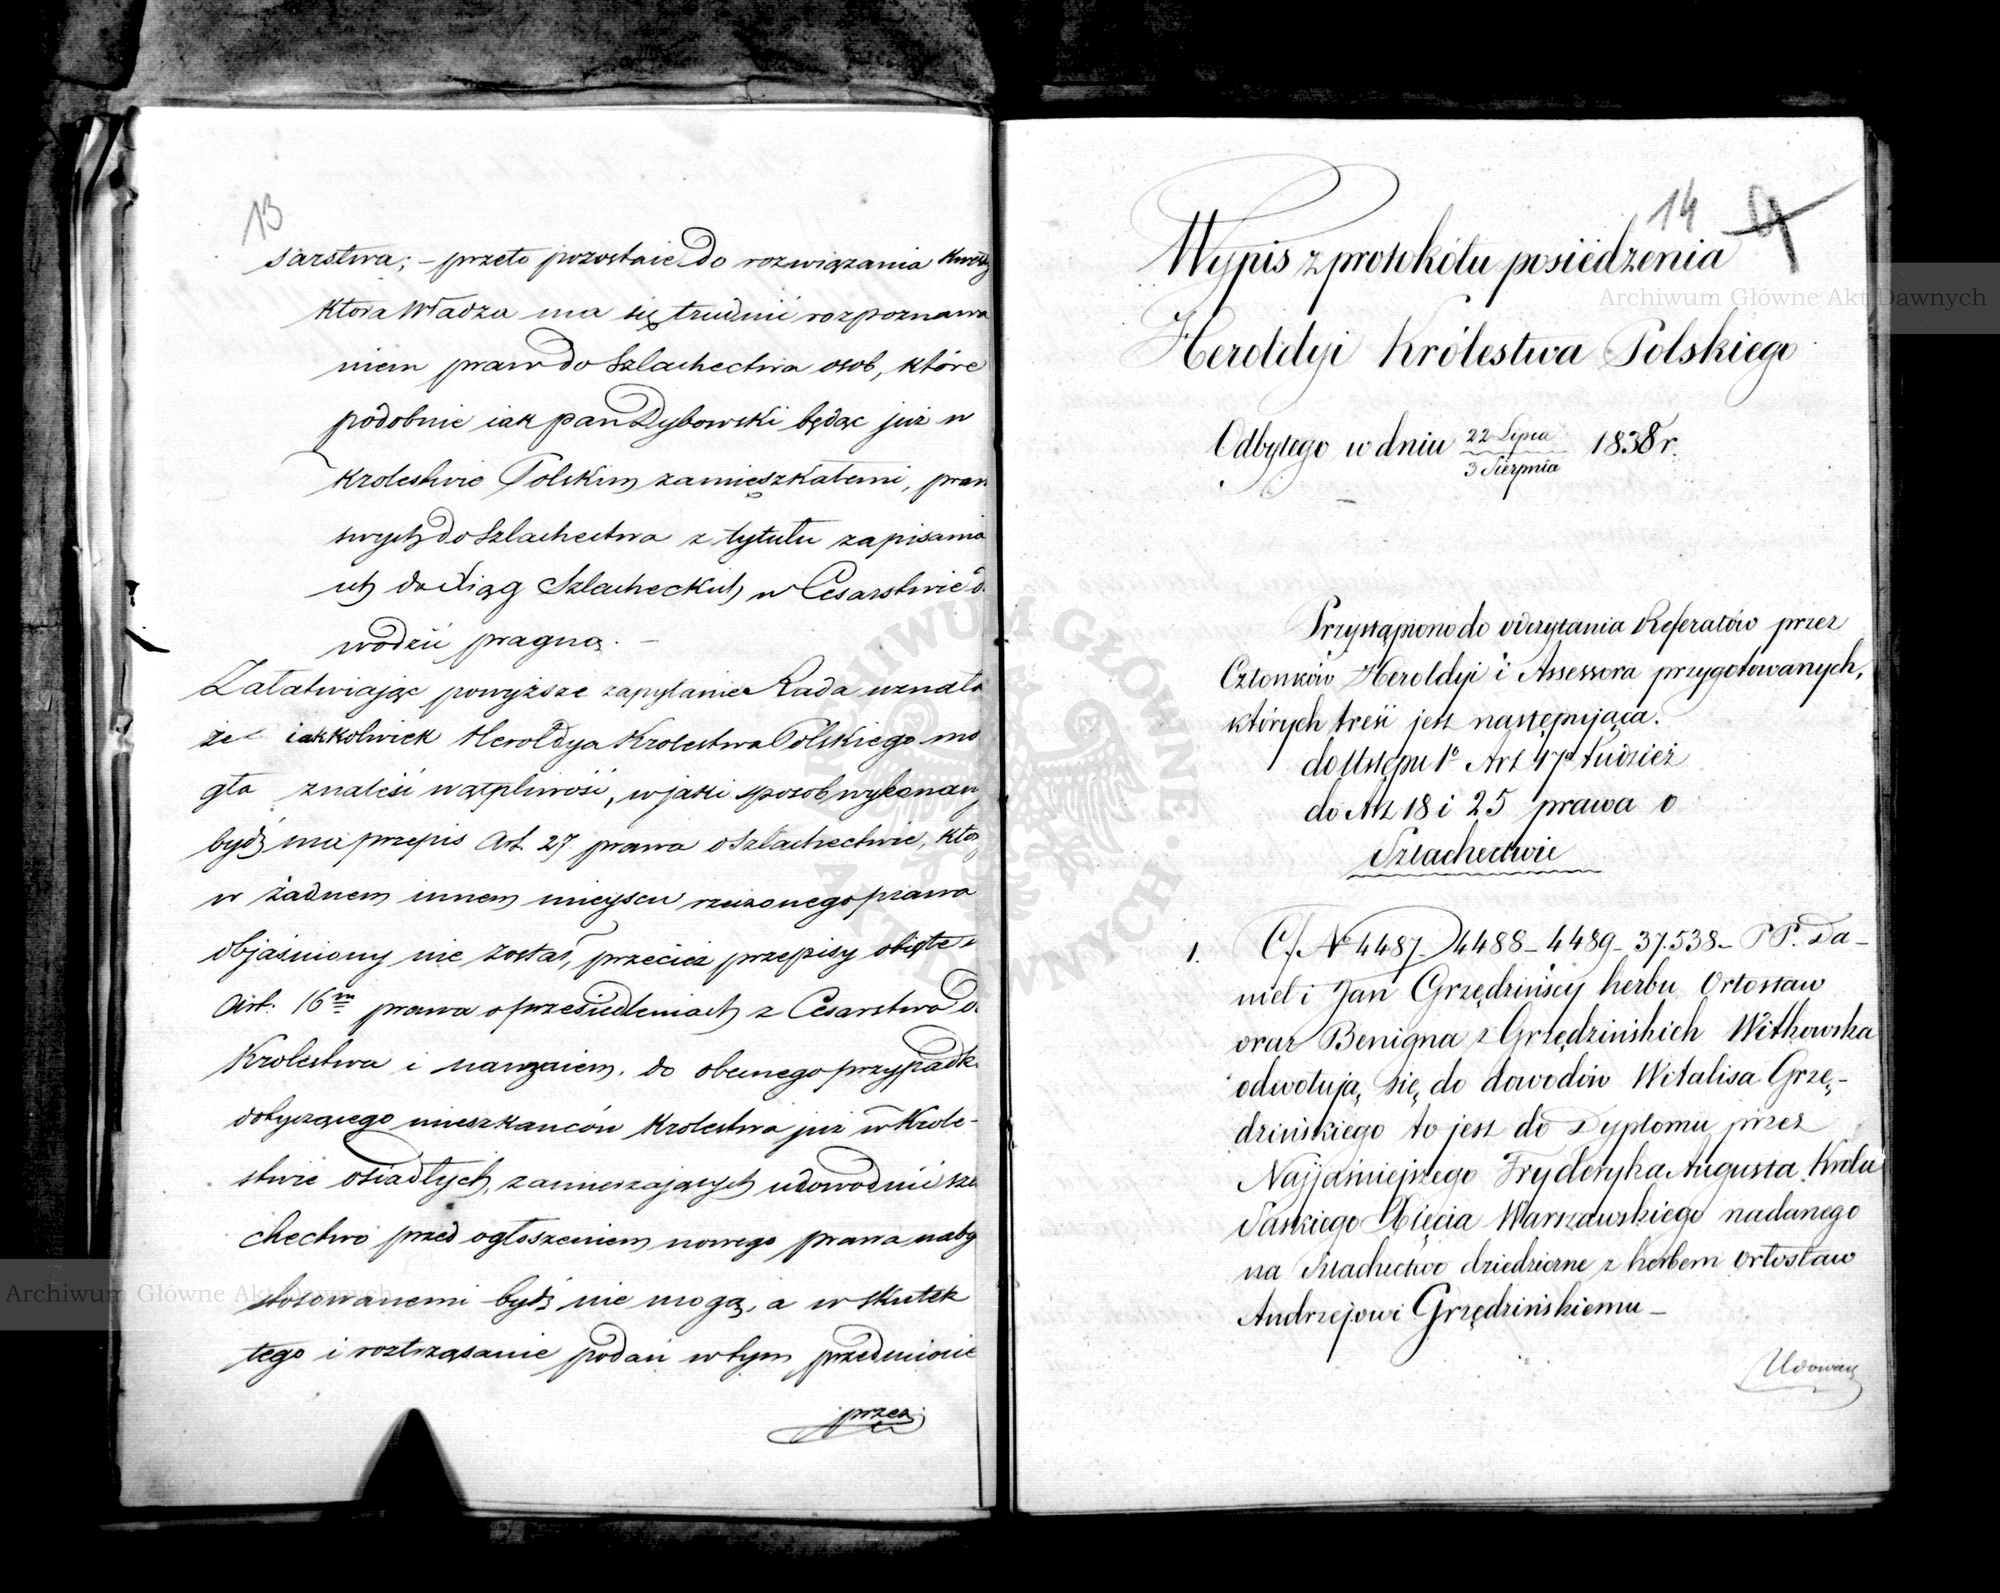 13
sarstwa; – przeto pozostaie do rozwiązania
ktora Władza ma się trudnić rozpozna
niem praw do Szlachectwa osob, które
podobnie iak pan Dybowski będąc już w
Krolestwie Polskim zamieszkałemi, praw
swych do Szlachectwa z tytułu zapisania
ich do Xiąg Szlacheckich w Cesarstwie do
wodzić pragną. –
Załatwiając powyższe zapytanie Rada uznała
że iakkolwiek Heroldya Krolestwa Polskiego mo
gła znaleść wątpliwość, w jaki sposob wykonany
bydź ma przepis Art. 27 prawa o Szlachectwie,
w żadnem innem mieyscu rzeczonego prawa
objaśniony nie został, przecież przepisy obięte
Art. 16m prawa o przesiedleniach z Cesarstwa do
Krolestwa i nawzaiem, do obecnego przypadk
dotyczącego mieszkancow Krolestwa już w Krole-
stwie osiadłych, zamierzających udowodnić szla
chectwo przed ogłoszeniem nowego prawa naby
stosowanemi bydź nie mogą, a w skutek
tego i roztrząsanie podań w tym przedmiocie
przez
14
Wypis z protokółu posiedzenia
Heroldyi Królestwa Polskiego
Odbytego w dniu 22 Lipca / 3 Sierpnia 1838 r.
Przystąpiono do odczytania Referatów przez
Członków Heroldyi i Assessora przygotowanych,
których treść jest następująca.
do Ustępu 1o Art 47o tudzież
do Art 18 i 25 prawa o
Szlachectwie
1. C/ No 4487 4488 – 4489 – 37.538 – PP. Da–
niel i Jan Grzędzińscy herbu Ortosław
oraz Benigna z Grzędzińskich Witkowska
odwołują się do dowodów Witalisa Grzę–
dzińskiego to jest do Dyplomu przez
Najjaśniejszego Fryderyka Augusta Króla
Saskiego Xięcia Warszawskiego nadanego
na Szlachectwo dziedziczne z herbem Ortosław
Andrzejowi Grzędzińskiemu –
Archiwum Główne Akt Dawnych
Archiwum Główne Akt Dawnych
ARCHIWUM GŁÓWNE AKT DAWNYCH